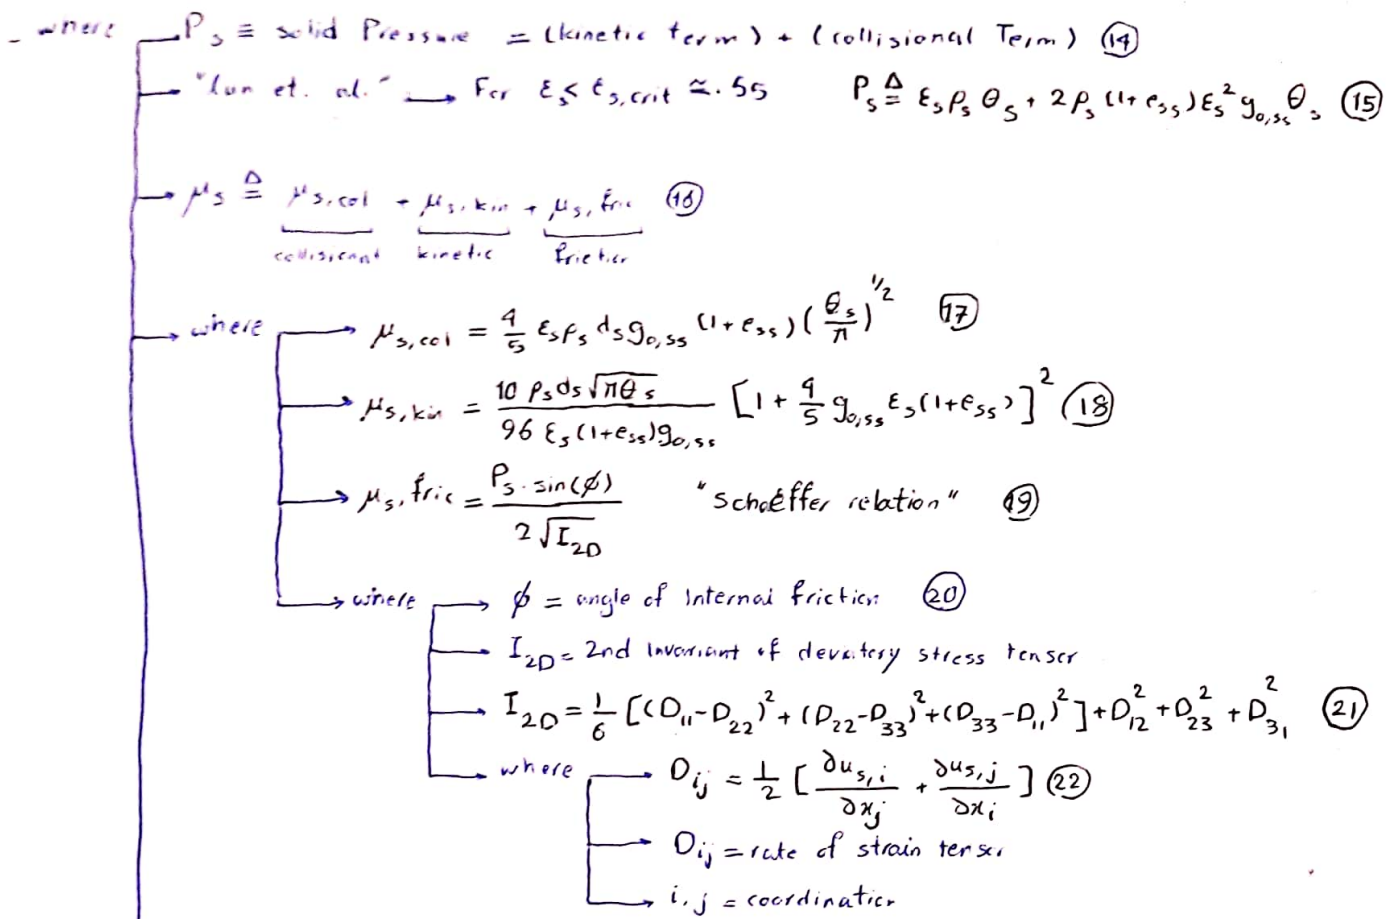 - where → P_s ≡ solid Pressure = (kinetic term) + (collisional Term) (14)
→ "lun et. al." → For ε_s < ε_{s,crit} ≅ .55 P_s ≜ ε_s ρ_s θ_s + 2 ρ_s (1+e_{ss}) ε_s² g_{0,ss} θ_s (15)
→ μ_s ≜ μ_{s,col} + μ_{s,kin} + μ_{s,fric} (16)
collisional kinetic friction
→ where → μ_{s,col} = 4/5 ε_s ρ_s d_s g_{0,ss} (1+e_{ss}) (θ_s/π)^{1/2} (17)
→ μ_{s,kin} = 10 ρ_s d_s √(πθ_s) / 96 ε_s (1+e_{ss}) g_{0,ss} [1 + 4/5 g_{0,ss} ε_s (1+e_{ss})]² (18)
→ μ_{s,fric} = P_s · sin(φ) / 2√I_{2D} "Schaeffer relation" (19)
→ where → φ = angle of Internal friction (20)
→ I_{2D} = 2nd Invariant of deviatory stress tensor
→ I_{2D} = 1/6 [(D_{11}-D_{22})² + (D_{22}-D_{33})² + (D_{33}-D_{11})²] + D_{12}² + D_{23}² + D_{31}² (21)
→ where → D_{ij} = 1/2 [∂u_{s,i}/∂x_j + ∂u_{s,j}/∂x_i] (22)
→ D_{ij} = rate of strain tensor
→ i,j = coordination